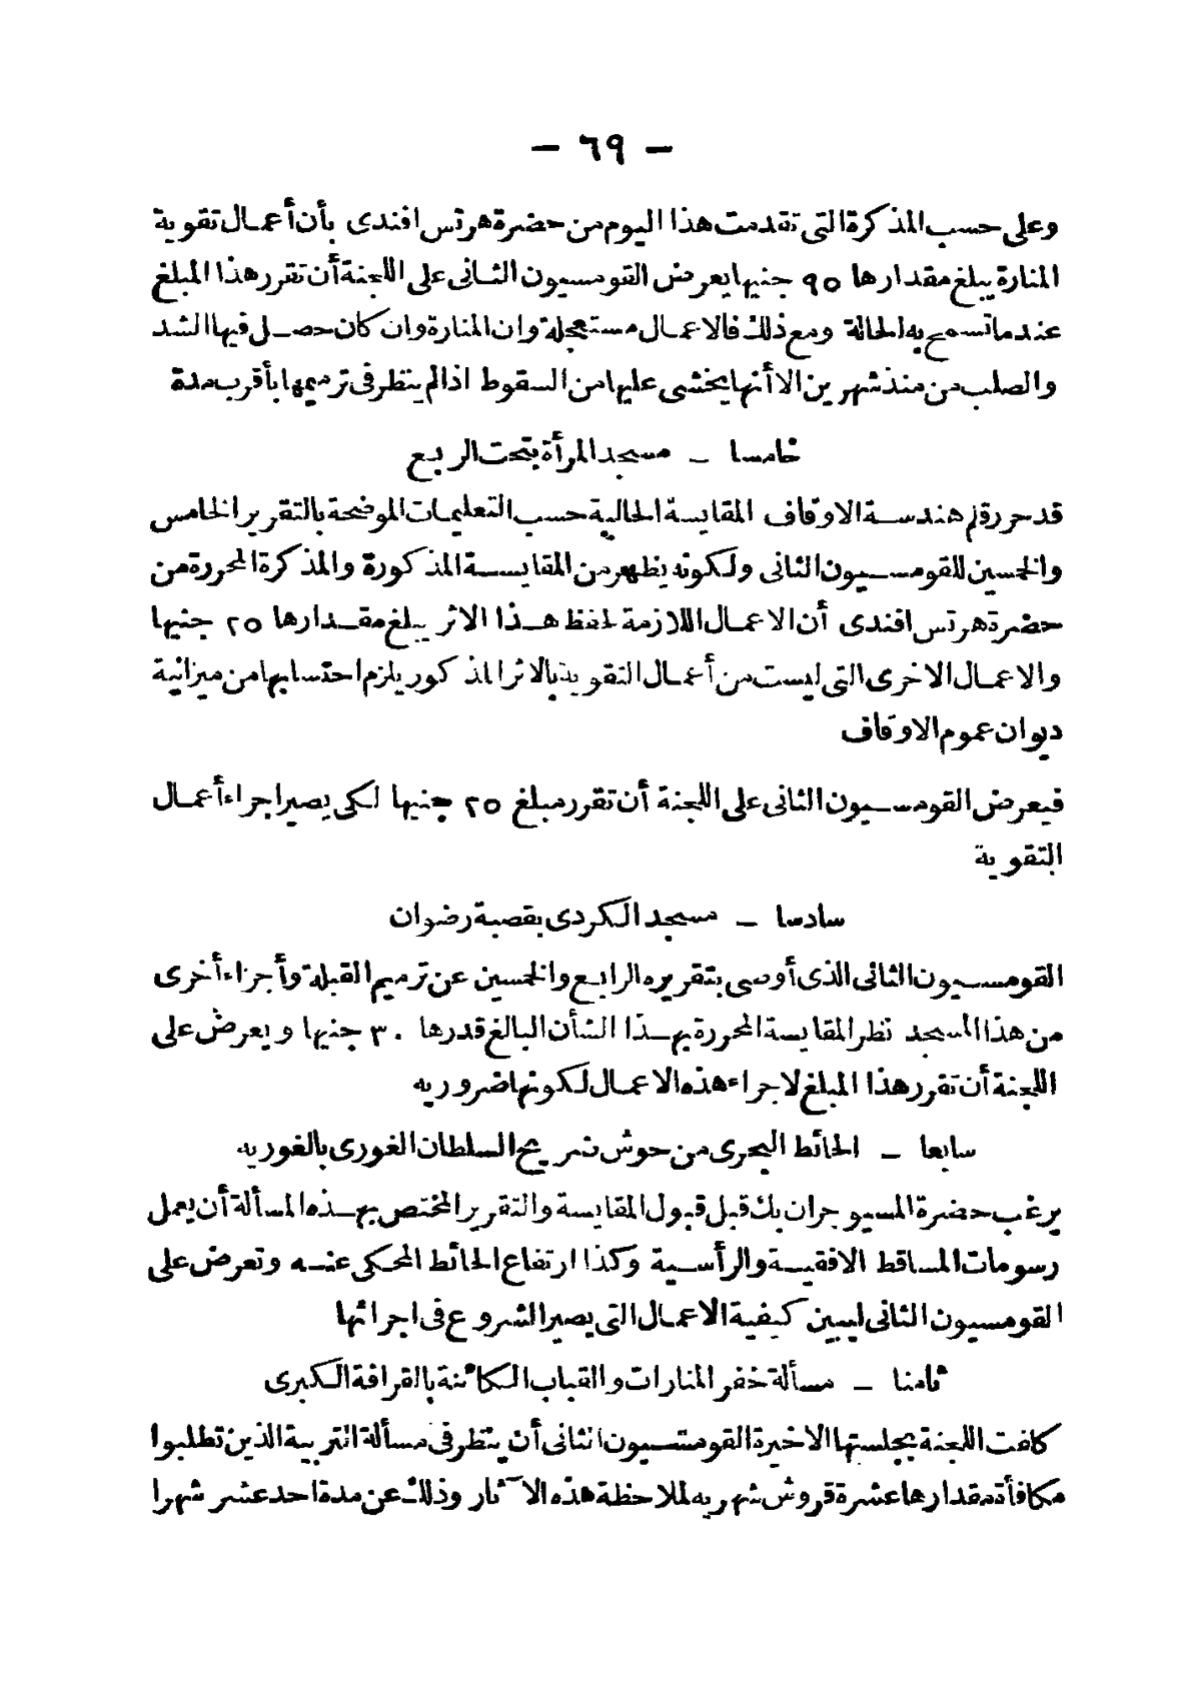 — ٦٩ —
وعلى حسب المذكرة التى تقدمت هذا اليوم من حضرة هرتس افندى بأن أعمال تقوية
المنارة يبلغ مقدارها ٩٥ جنيها يعرض القومسيون الثانى على اللجنة أن تقرر هذا المبلغ
عندما تسمح به الحالة ومع ذلك فالاعمال مستعجلة وان المنارة وان كان حصل فيها الشد
والصلب من منذ شهرين الا أنها يخشى عليها من السقوط اذا لم ينظر فى ترميمها بأقرب مدة
خامسا — مسجد المرأة بتحت الربع
قد حرر قلم هندسة الاوقاف المقايسة الحالية حسب التعليمات الموضحة بالتقرير الخامس
والخمسين للقومسيون الثانى ولكونه يظهر من المقايسة المذكورة والمذكرة المحررة من
حضرة هرتس افندى أن الاعمال اللازمة لحفظ هذا الاثر يبلغ مقدارها ٢٥ جنيها
والاعمال الاخرى التى ليست من أعمال التقوية بالاثر المذكور يلزم احتسابها من ميزانية
ديوان عموم الاوقاف
فيعرض القومسيون الثانى على اللجنة أن تقرر مبلغ ٢٥ جنيها لكى يصير اجراء أعمال
التقوية
سادسا — مسجد الكردى بقصبة رضوان
القومسيون الثانى الذى أوصى بتقريره الرابع والخمسين عن ترميم القبلة وأجزاء أخرى
من هذا المسجد نظر المقايسة المحررة بهذا الشأن البالغ قدرها ٣٠ جنيها ويعرض على
اللجنة أن تقرر هذا المبلغ لاجراء هذه الاعمال لكونها ضروريه
سابعا — الحائط البحرى من حوش ضريح السلطان الغورى بالغوريه
يرغب حضرة المسيو جران بك قبل قبول المقايسة والتقرير المختص بهذه المسألة أن يعمل
رسومات المساقط الافقية والرأسية وكذا ارتفاع الحائط المحكى عنه وتعرض على
القومسيون الثانى ليبين كيفية الاعمال التى يصير الشروع فى اجرائها
ثامنا — مسألة خفر المنارات والقباب الكائنة بالقرافة الكبرى
كافت اللجنة بجلستها الاخيرة القومسيون الثانى أن ينظر فى مسألة التربية الذين تطلبوا
مكافأة مقدارها عشرة قروش شهريه لملاحظة هذه الآثار وذلك عن مدة احد عشر شهرا